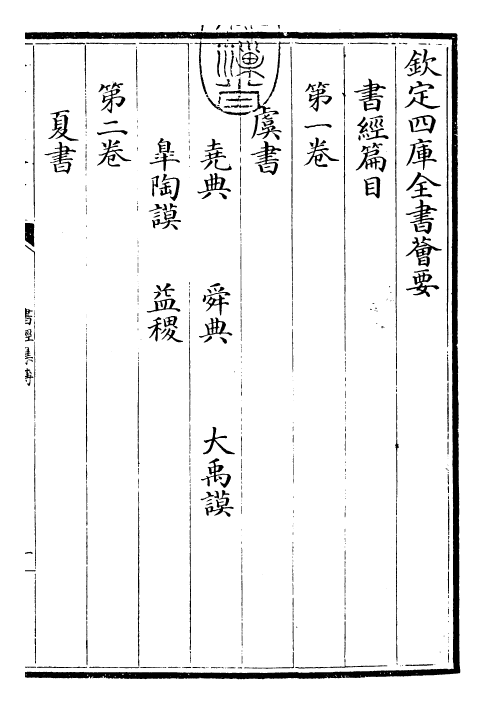 欽定四庫全書薈要
書經篇目
第一卷
虞書
堯典 舜典 大禹謨
臯陶謨 益稷
第二卷
夏書
書經集傳
一